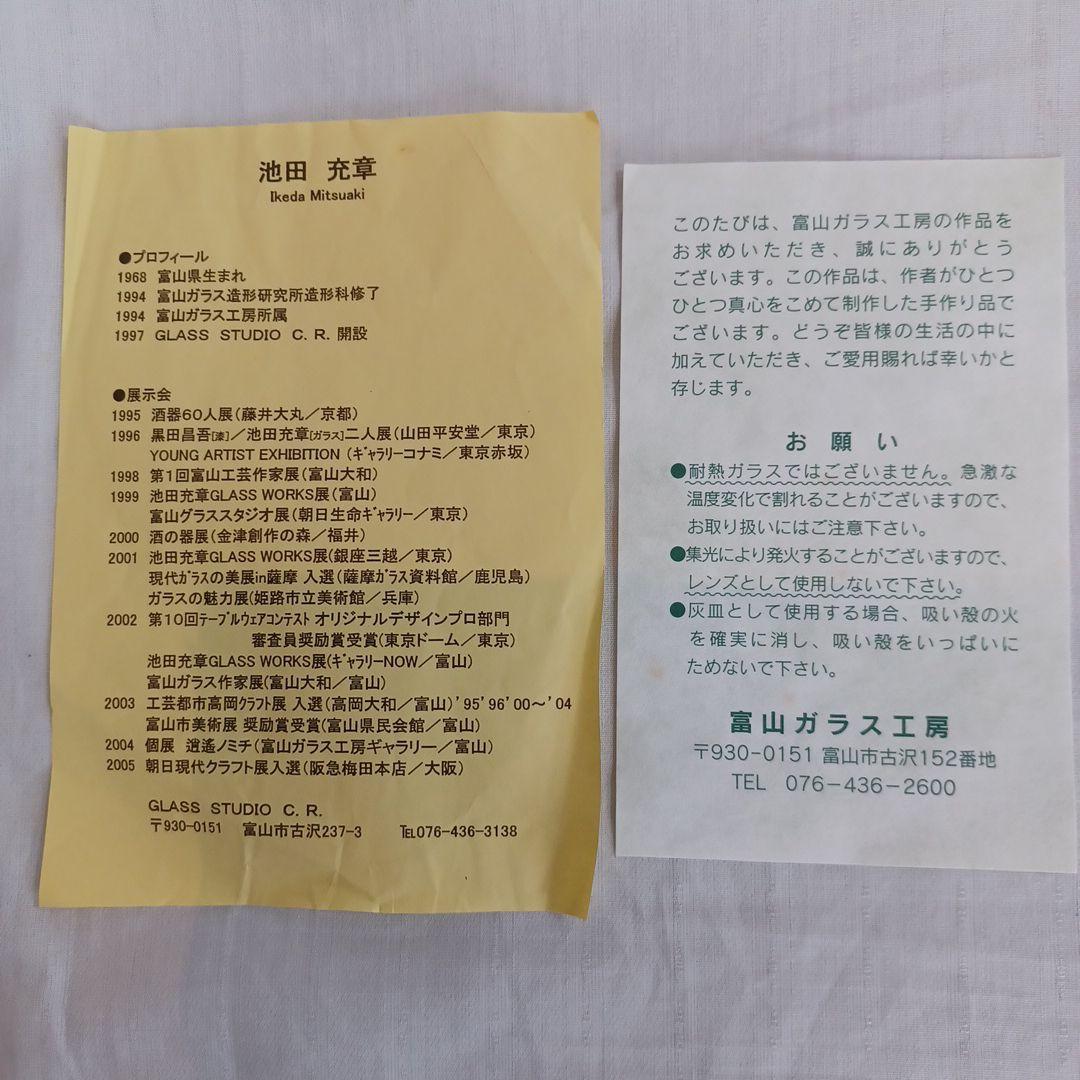 池田 充章
Ikeda Mitsuaki
●プロフィール
1968 富山県生まれ
1994 富山ガラス造形研究所造形科修了
1994 富山ガラス工房所属
1997 GLASS STUDIO C. R. 開設
●展示会
1995 酒器60人展(藤井大丸/京都)
1996 黒田昌吾[漆]/池田充章[ガラス]二人展(山田平安堂/東京)
YOUNG ARTIST EXHIBITION (ギャラリーコナミ/東京赤坂)
1998 第1回富山工芸作家展(富山大和)
1999 池田充章GLASS WORKS展(富山)
富山グラススタジオ展(朝日生命ギャラリー/東京)
2000 酒の器展(金津創作の森/福井)
2001 池田充章GLASS WORKS展(銀座三越/東京)
現代ガラスの美展in薩摩 入選(薩摩ガラス資料館/鹿児島)
ガラスの魅力展(姫路市立美術館/兵庫)
2002 第10回テーブルウェアコンテスト オリジナルデザインプロ部門
審査員奨励賞受賞(東京ドーム/東京)
池田充章GLASS WORKS展(ギャラリーNOW/富山)
富山ガラス作家展(富山大和/富山)
2003 工芸都市高岡クラフト展 入選(高岡大和/富山)'95'96'00～'04
富山市美術展 奨励賞受賞(富山県民会館/富山)
2004 個展 逍遙ノミチ(富山ガラス工房ギャラリー/富山)
2005 朝日現代クラフト展入選(阪急梅田本店/大阪)
GLASS STUDIO C. R.
〒930-0151 富山市古沢237-3 TEL076-436-3138
このたびは、富山ガラス工房の作品を
お求めいただき、誠にありがとう
ございます。この作品は、作者がひとつ
ひとつ真心をこめて制作した手作り品で
ございます。どうぞ皆様の生活の中に
加えていただき、ご愛用賜れば幸いかと
存じます。
お願い
●耐熱ガラスではございません。急激な
温度変化で割れることがございますので、
お取り扱いにはご注意下さい。
●集光により発火することがございますので、
レンズとして使用しないで下さい。
●灰皿として使用する場合、吸い殻の火
を確実に消し、吸い殻をいっぱいに
ためないで下さい。
富山ガラス工房
〒930-0151 富山市古沢152番地
TEL 076-436-2600